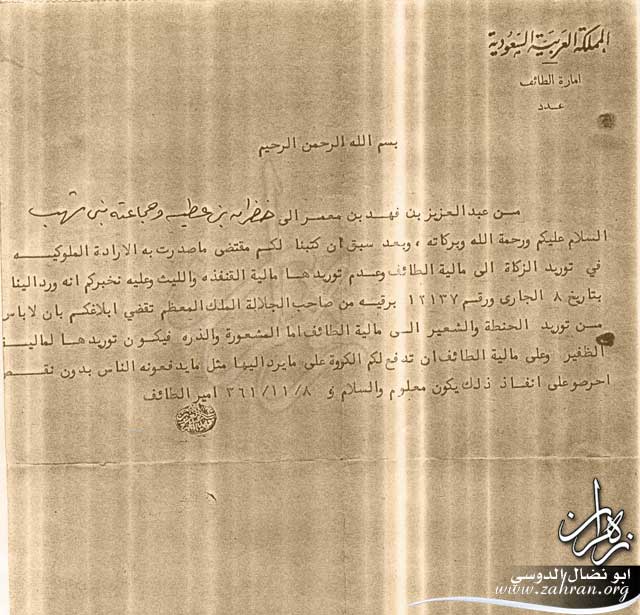 المملكة العربية السعودية
امارة الطائف
عدد
بسم الله الرحمن الرحيم
من عبدالعزيز بن فهد بن معمر الى خضران بن عطيه وجماعته بني
السلام عليكم ورحمة الله وبركاته ، وبعد سبق ان كتبنا لكم مقتضى ماصدرت به الارادة الملوكيه
في توريد الزكاة الى مالية الطائف وعدم توريدها مالية القنفذه والليث وعليه نخبركم انه ورد الينا
بتاريخ ٨ الجارى ورقم ١٢١٣٧ برقيه من صاحب الجلالة الملك المعظم تقضي ابلاغكم بان لاباس
من توريد الحنطة والشعير الى مالية الطائف اما المشعورة والذره فيكون توريدها لمالية
الظفير وعلى مالية الطائف ان تدفع لكم الكروة على مايرد اليها مثل مايدفعونه الناس بدون نقص
احرصو على انفاذ ذلك يكون معلوم والسلام و ٣٦١/١١/٨ امير الطائف
زهران
ابو نضال الدوسي
www.zahran.org